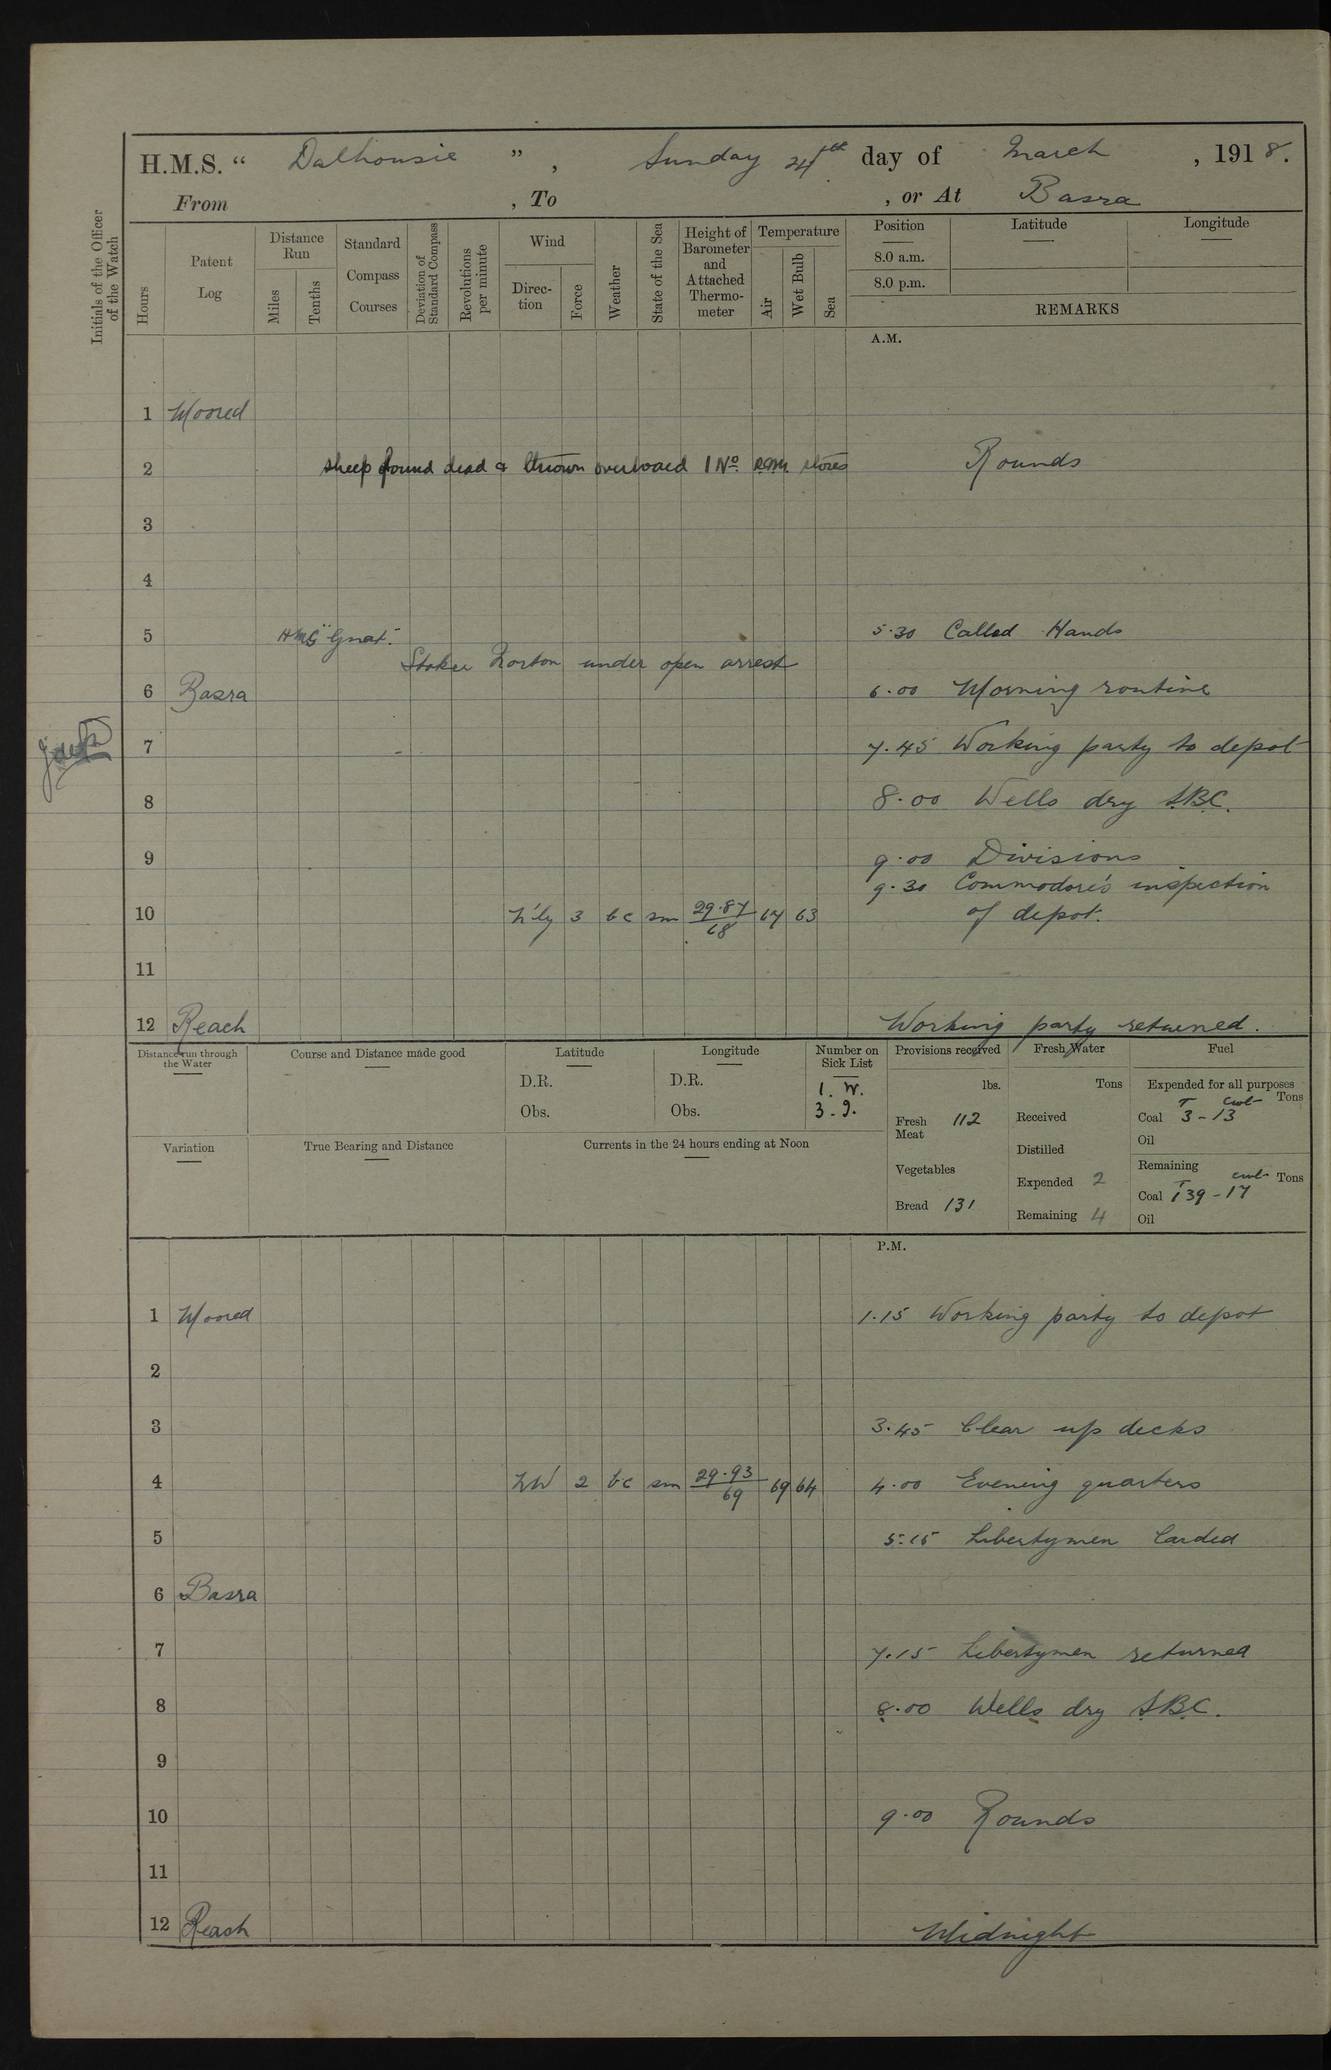 H.M.S. “ Dalhousie ” , Sunday 24th day of March , 1918.
From , To , or At Basra
Initials of the Officer of the Watch
Hours
Patent Log
Distance Run
Miles
Tenths
Standard Compass Courses
Deviation of Standard Compass
Revolutions per minute
Wind
Direc-tion
Force
Weather
State of the Sea
Height of Barometer and Attached Thermo-meter
Temperature
Air
Wet Bulb
Sea
Position
8.0 a.m.
8.0 p.m.
Latitude
Longitude
REMARKS
A.M.
1 Moored
2 sheep found dead & thrown overboard 1 No. stores Rounds
3
4
5 HMS "Gnat". 5.30 Called Hands
Stoker Norton under open arrest
6 Basra 6.00 Morning routine
7 7.45 Working party to depot
8 8.00 Wells dry S.B.C.
9 9.00 Divisions
9.30 Commodore's inspection
10 N'ly 3 bc sm 29.87 68 67 63 of depot.
11
12 Reach Working party returned.
Distance run through the Water
Course and Distance made good
Latitude
D.R.
Obs.
Longitude
D.R.
Obs.
Number on Sick List
1. W.
3. I.
Provisions received
lbs.
Fresh Meat 112
Vegetables
Bread 131
Fresh Water
Tons
Received
Distilled
Expended 2
Remaining 4
Fuel
Expended for all purposes
T cwt Tons
Coal 3 - 13
Oil
Remaining
T cwt Tons
Coal 139 - 17
Oil
Variation
True Bearing and Distance
Currents in the 24 hours ending at Noon
P.M.
1 Moored 1.15 Working party to depot
2
3 3.45 Clear up decks
4 NW 2 bc sm 29.93 69 69 64 4.00 Evening quarters
5 5.15 Libertymen landed
6 Basra
7 7.15 Libertymen returned
8 8.00 Wells dry S.B.C.
9
10 9.00 Rounds
11
12 Reach Midnight